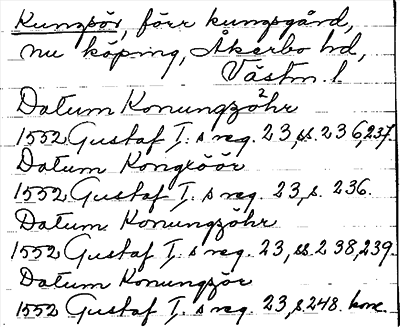 Kungsör, förr kungsgård,
nu köping, Åkerbo hd,
Västm. l.
Datum Konungzöhr
1552 Gustaf I:s reg. 23, ss. 236, 237.
Datum Kongxöör
1552 Gustaf I:s reg. 23, s. 236.
Datum Konungzöhr
1552 Gustaf I:s reg. 23, ss. 238, 239.
Datum Konungzör
1552 Gustaf I:s reg. 23, s. 248. konc.